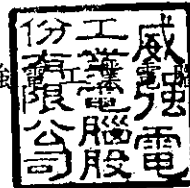 威強電
工業電腦股
份有限公司